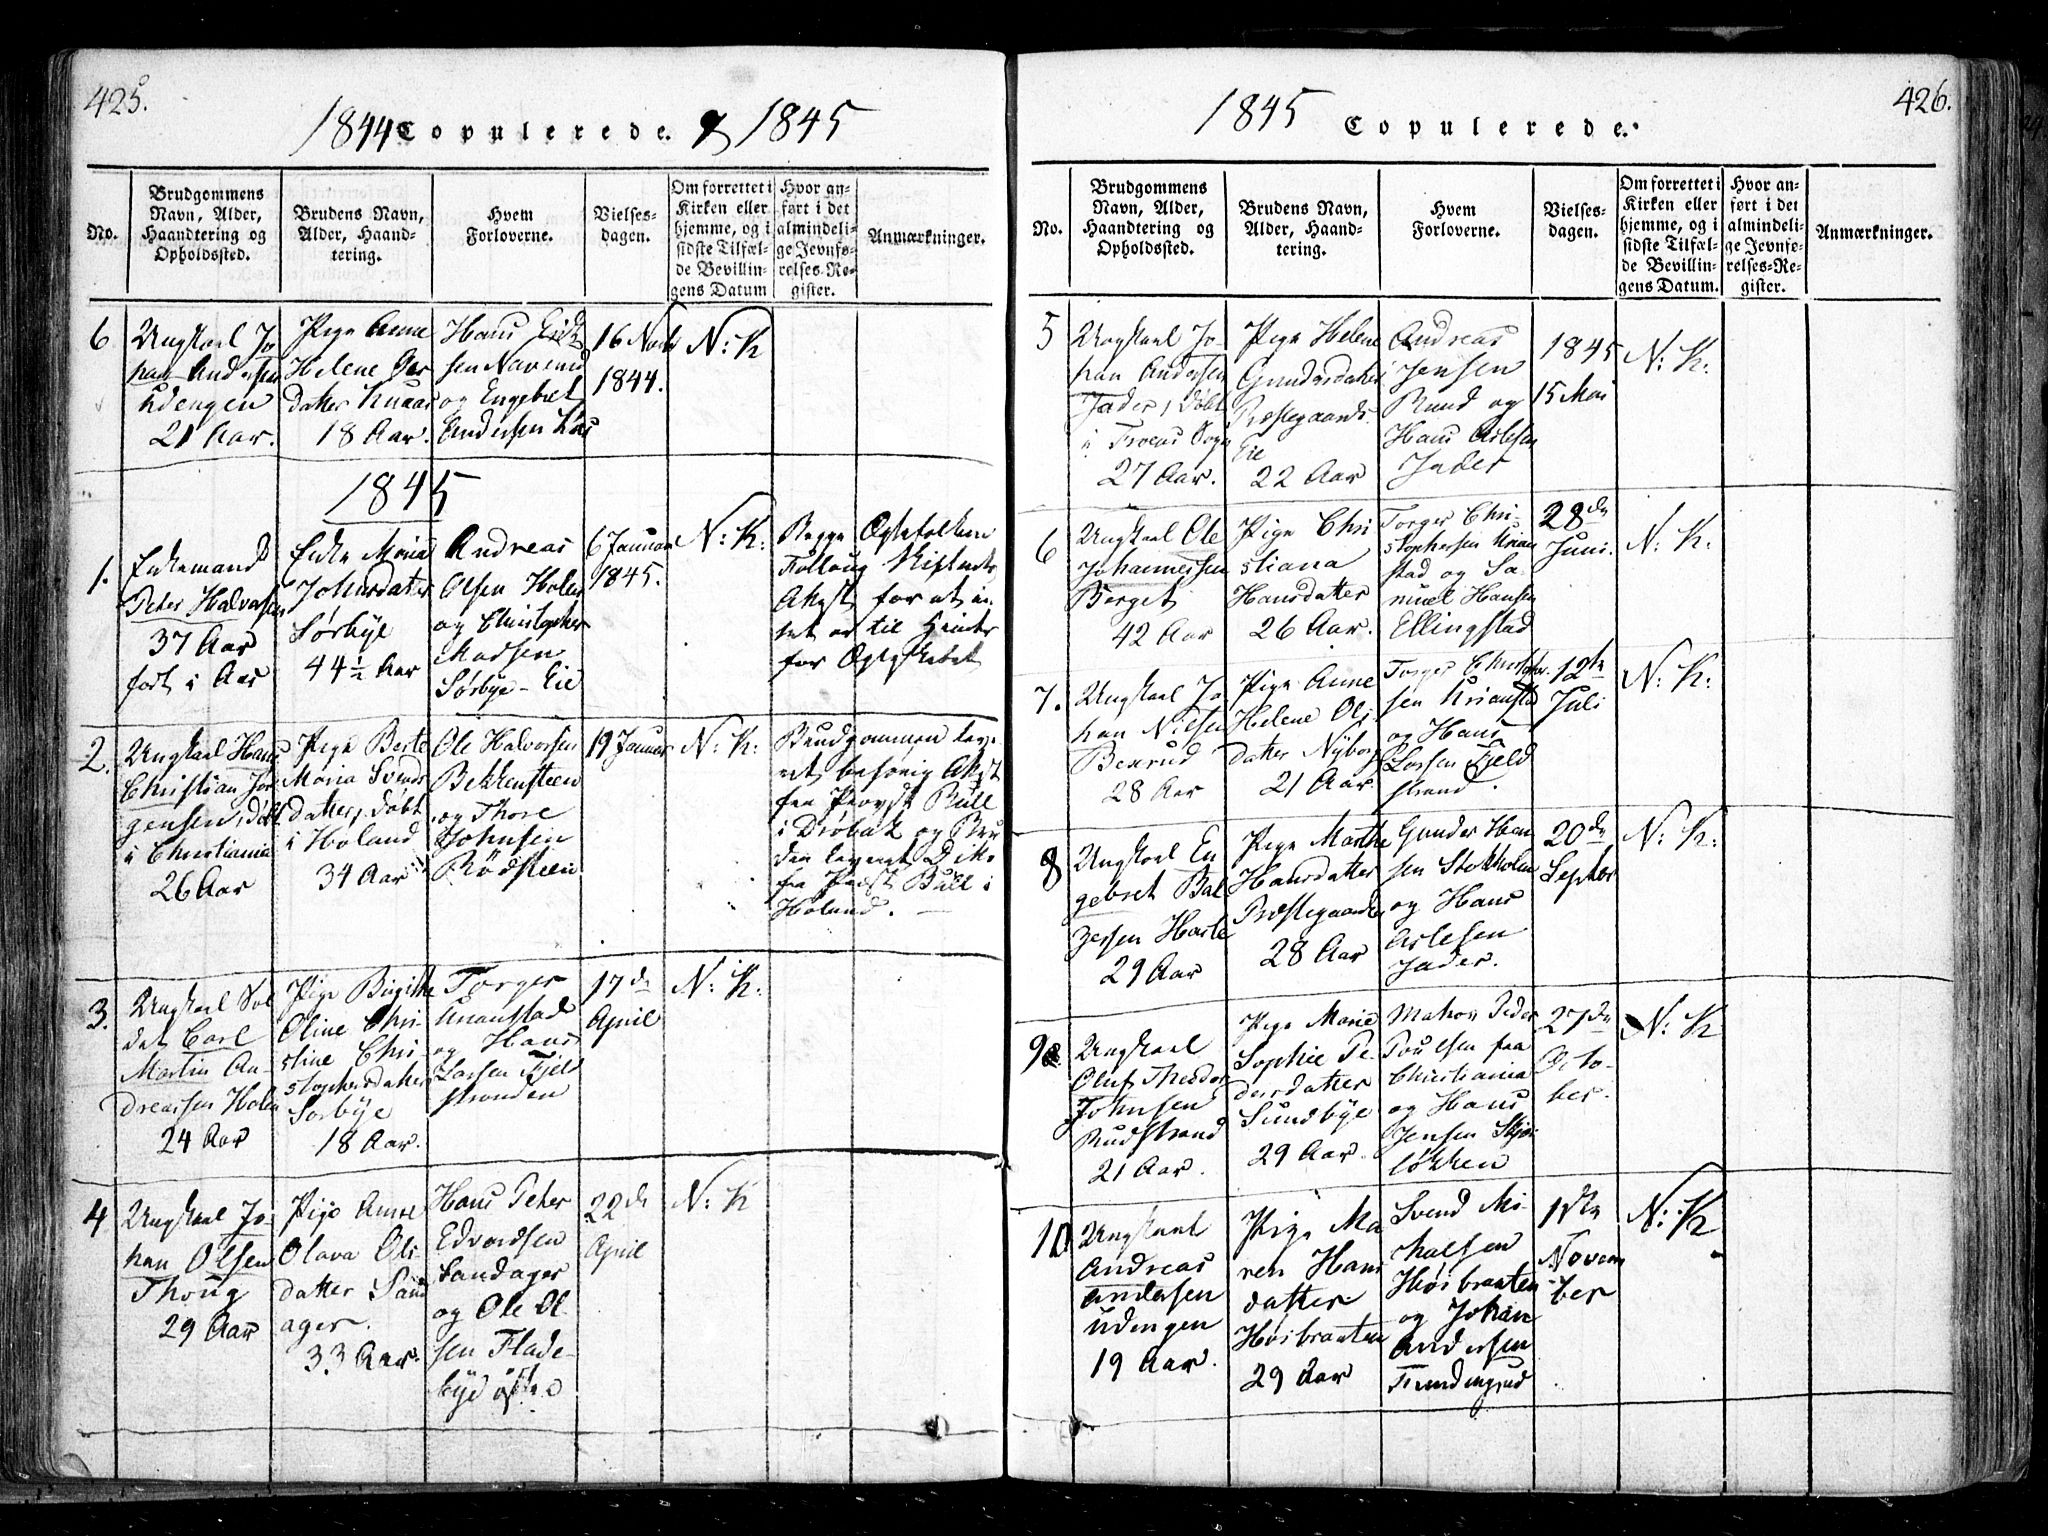 425.
1844 Copulerede. & 1845
No.
Brudgommens
Navn, Alder,
Haandtering og
Opholdssted.
Brudens Navn,
Alder, Haand-
tering.
Hvem
Forloverne.
Vielses-
dagen.
Om forrettet i
Kirken eller
hjemme, og i
sidste Tilfæl-
de Bevillin-
gens Datum
Hvor an-
ført i det
almindeli-
ge Jevnfø-
relses-Re-
gister.
Anmærkninger.
6
Ungkarl Jo
han Andersen
Udengen
21 Aar.
Pige Anne
Helene
datter
18 Aar.
Hans
sen
og Engebret
Andersen
16 Novb
1844.
N: K
1845
1.
Enkemand
Peter Halvorsen
37 Aar
født i Aas
Enke Maria
Johnsdatter
Sørbye
44½ Aar
Andreas
Olsen Holen
og Christopher
Madsen
Sørbye-Eie
6 Januar
1845.
N: K:
Begge Ægtefolkene
Attest for at in-
tet er til Hinder
for Ægteskabet
2.
Ungkarl Hans
Christian Jør
gensen, døbt
i Christiania
26 Aar
Pige Berte
Maria Svends
datter, døbt
i Høland
34 Aar
Ole Halvorsen
Bekkensteen
og Thore
Johnsen
Rødsteen
19 Januar
N: K:
Brudgommen lever
et behørig Attest
fra Provst Bull
i Drøbak og Bru
den leveret Do
fra Præst Bull i
Høland.
3.
Ungkarl Sol
dat Carl
Martin An-
dreassen Holen
24 Aar
Pige Birgithe
Oline Chri-
stine Chri-
stophersdatter
Sørbye
18 Aar.
Torger
og Hans
Larsen Fjeld
stranden
17de
April
N: K:
4
Ungkarl Jo-
han Olsen
Thoug
29 Aar
Pige Anne
Olava Ols
datter Sand
ager.
33 Aar.
Hans Peter
Edvardsen
Sandager
og Ole Ol-
sen Flade-
bye østre
22de
April
N: K
426.
1845 Copulerede.
No.
Brudgommens
Navn, Alder,
Haandtering og
Opholdssted.
Brudens Navn,
Alder, Haand-
tering.
Hvem
Forloverne.
Vielses-
dagen.
Om forrettet i
Kirken eller
hjemme, og i
sidste Tilfæl-
de Bevillin-
gens Datum.
Hvor an-
ført i det
almindeli-
ge Jevnfø-
relses-Re-
gister.
Anmærkninger.
5
Ungkarl Jo-
han Andersen
Jader, døbt
i Sogn
27 Aar.
Pige Helene
Gundersdatter
Præstegaards
Eie
22 Aar
Andreas
Jensen
Rud og
Hans Arlesen
Jader
1845
15 Mai
N: K:
6
Ungkarl Ole
Johannessen
Berget
42 Aar
Pige Chri
stiana
Hansdatter
26 Aar.
Torger Chri-
stophersen
stad og Sa-
muel Hansen
Ellingstad
28de
Juni.
N: K:
7.
Ungkarl Jo
han Nielsen
Bexrud
28 Aar
Pige Anne
Helene Ols
datter Nyborg
21 Aar
Torger Christopher-
sen
og Hans
Larsen Fjeld
strand.
12te
Juli
N: K:
8
Ungkarl En
gebret Bal
zersen Harte
29 Aar
Pige Marthe
Hansdatter
Præstegaarden
28 Aar
Gunder Han
sen Stokholm
og Hans
Arlesen
Jader.
20de
Septbr
N: K:
9
Ungkarl
Oluf Theodor
Johnsen
Rudstrand
21 Aar.
Pige Marie
Sophie Pe
dersdatter
Sundbye
29 Aar.
Peder
Poulsen fra
Christiania
og Hans
Jensen
løkken
27de
Octo-
ber.
N: K
10
Ungkarl
Andreas
Andersen
Udengen
19 Aar.
Pige Ma
ren Hans
datter
Høibraaten
29 Aar
Svend Mi-
chalsen
Høibraaten
og Johan
Andersen
1ste
Novem
ber
N: K